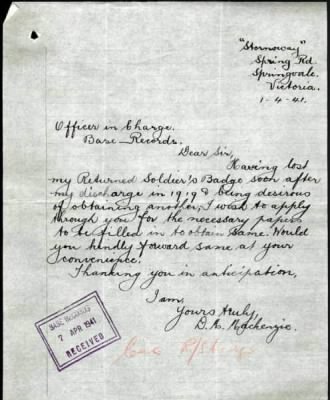 "Stornoway"
Spring Rd
Springvale.
Victoria.
1-4-41.
Officer in Charge.
Base Records.
Dear Sir,
Having lost
my Returned Soldier's Badge soon after
my discharge in 1919 & being desirous
of obtaining another, I wish to apply
through you for the necessary papers
to be filled in to obtain same. Would
you kindly forward same at your
convenience.
Thanking you in anticipation,
I am,
Yours truly,
D. A. Mackenzie.
BASE RECORDS
2 APR 1941
RECEIVED